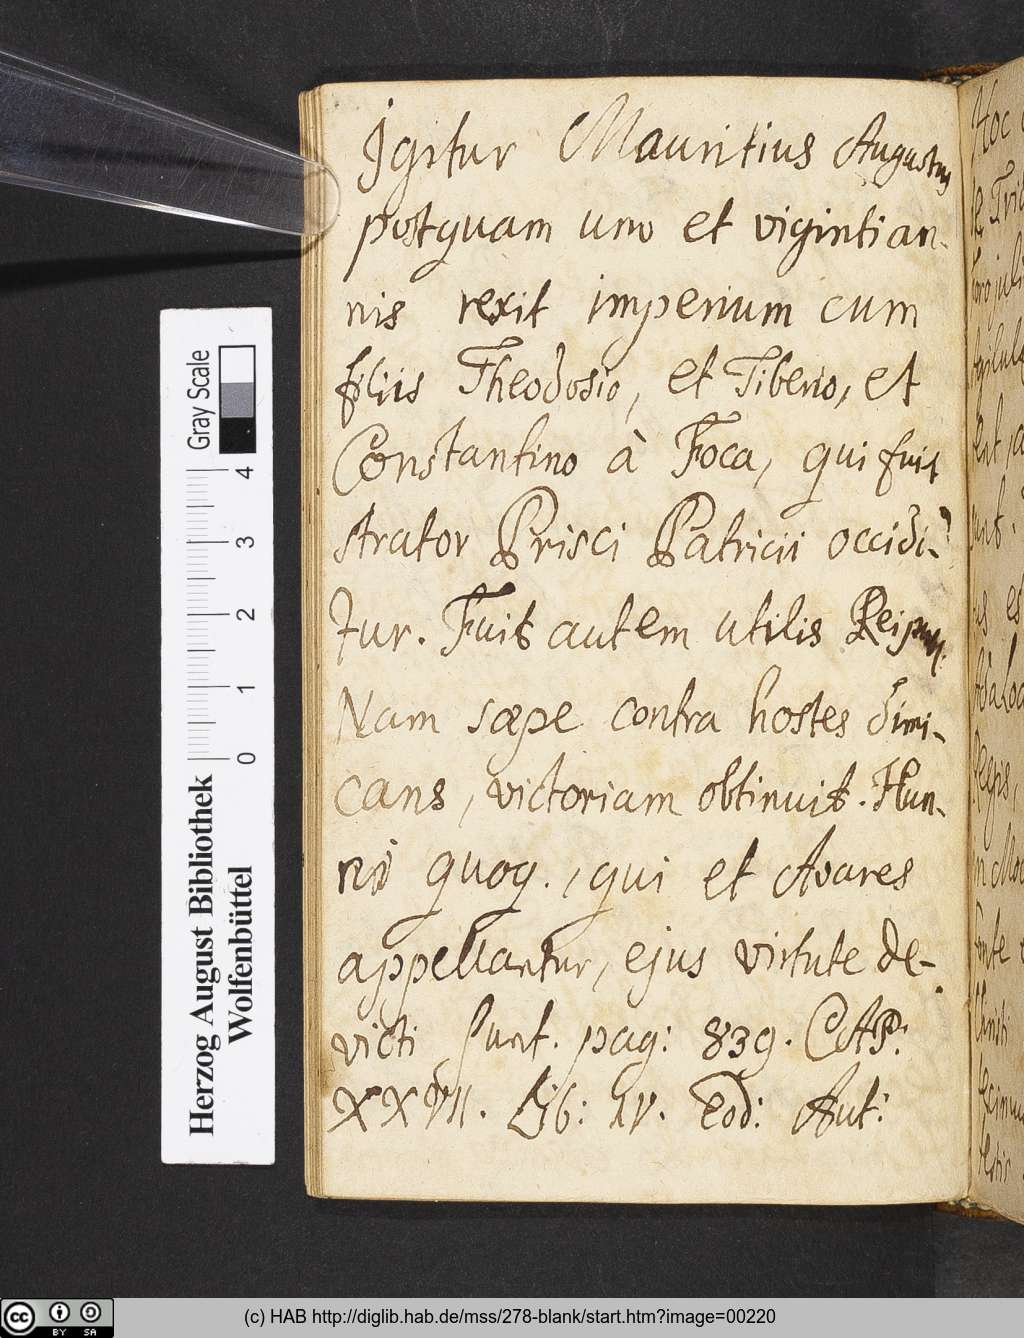 Igitur Mauritius Augustus
postquam uno et viginti an-
nis rexit imperium cum
filiis Theodosio, et Tiberio, et
Constantino à Foca, qui fuit
strator Prisci Patricii occidi-
tur. Fuit autem utilis Reipub:
Nam sæpe contra hostes dimi-
cans, victoriam obtinuit. Hun-
ni quoq., qui et Avares
appellantur, ejus virtute de-
victi sunt. pag: 839. CAP:
XXVII. Lib: IV. Eod: Aut:
Hoc
Gray Scale
4
3
2
1
0
Herzog August Bibliothek
Wolfenbüttel
CC BY SA
(c) HAB http://diglib.hab.de/mss/278-blank/start.htm?image=00220